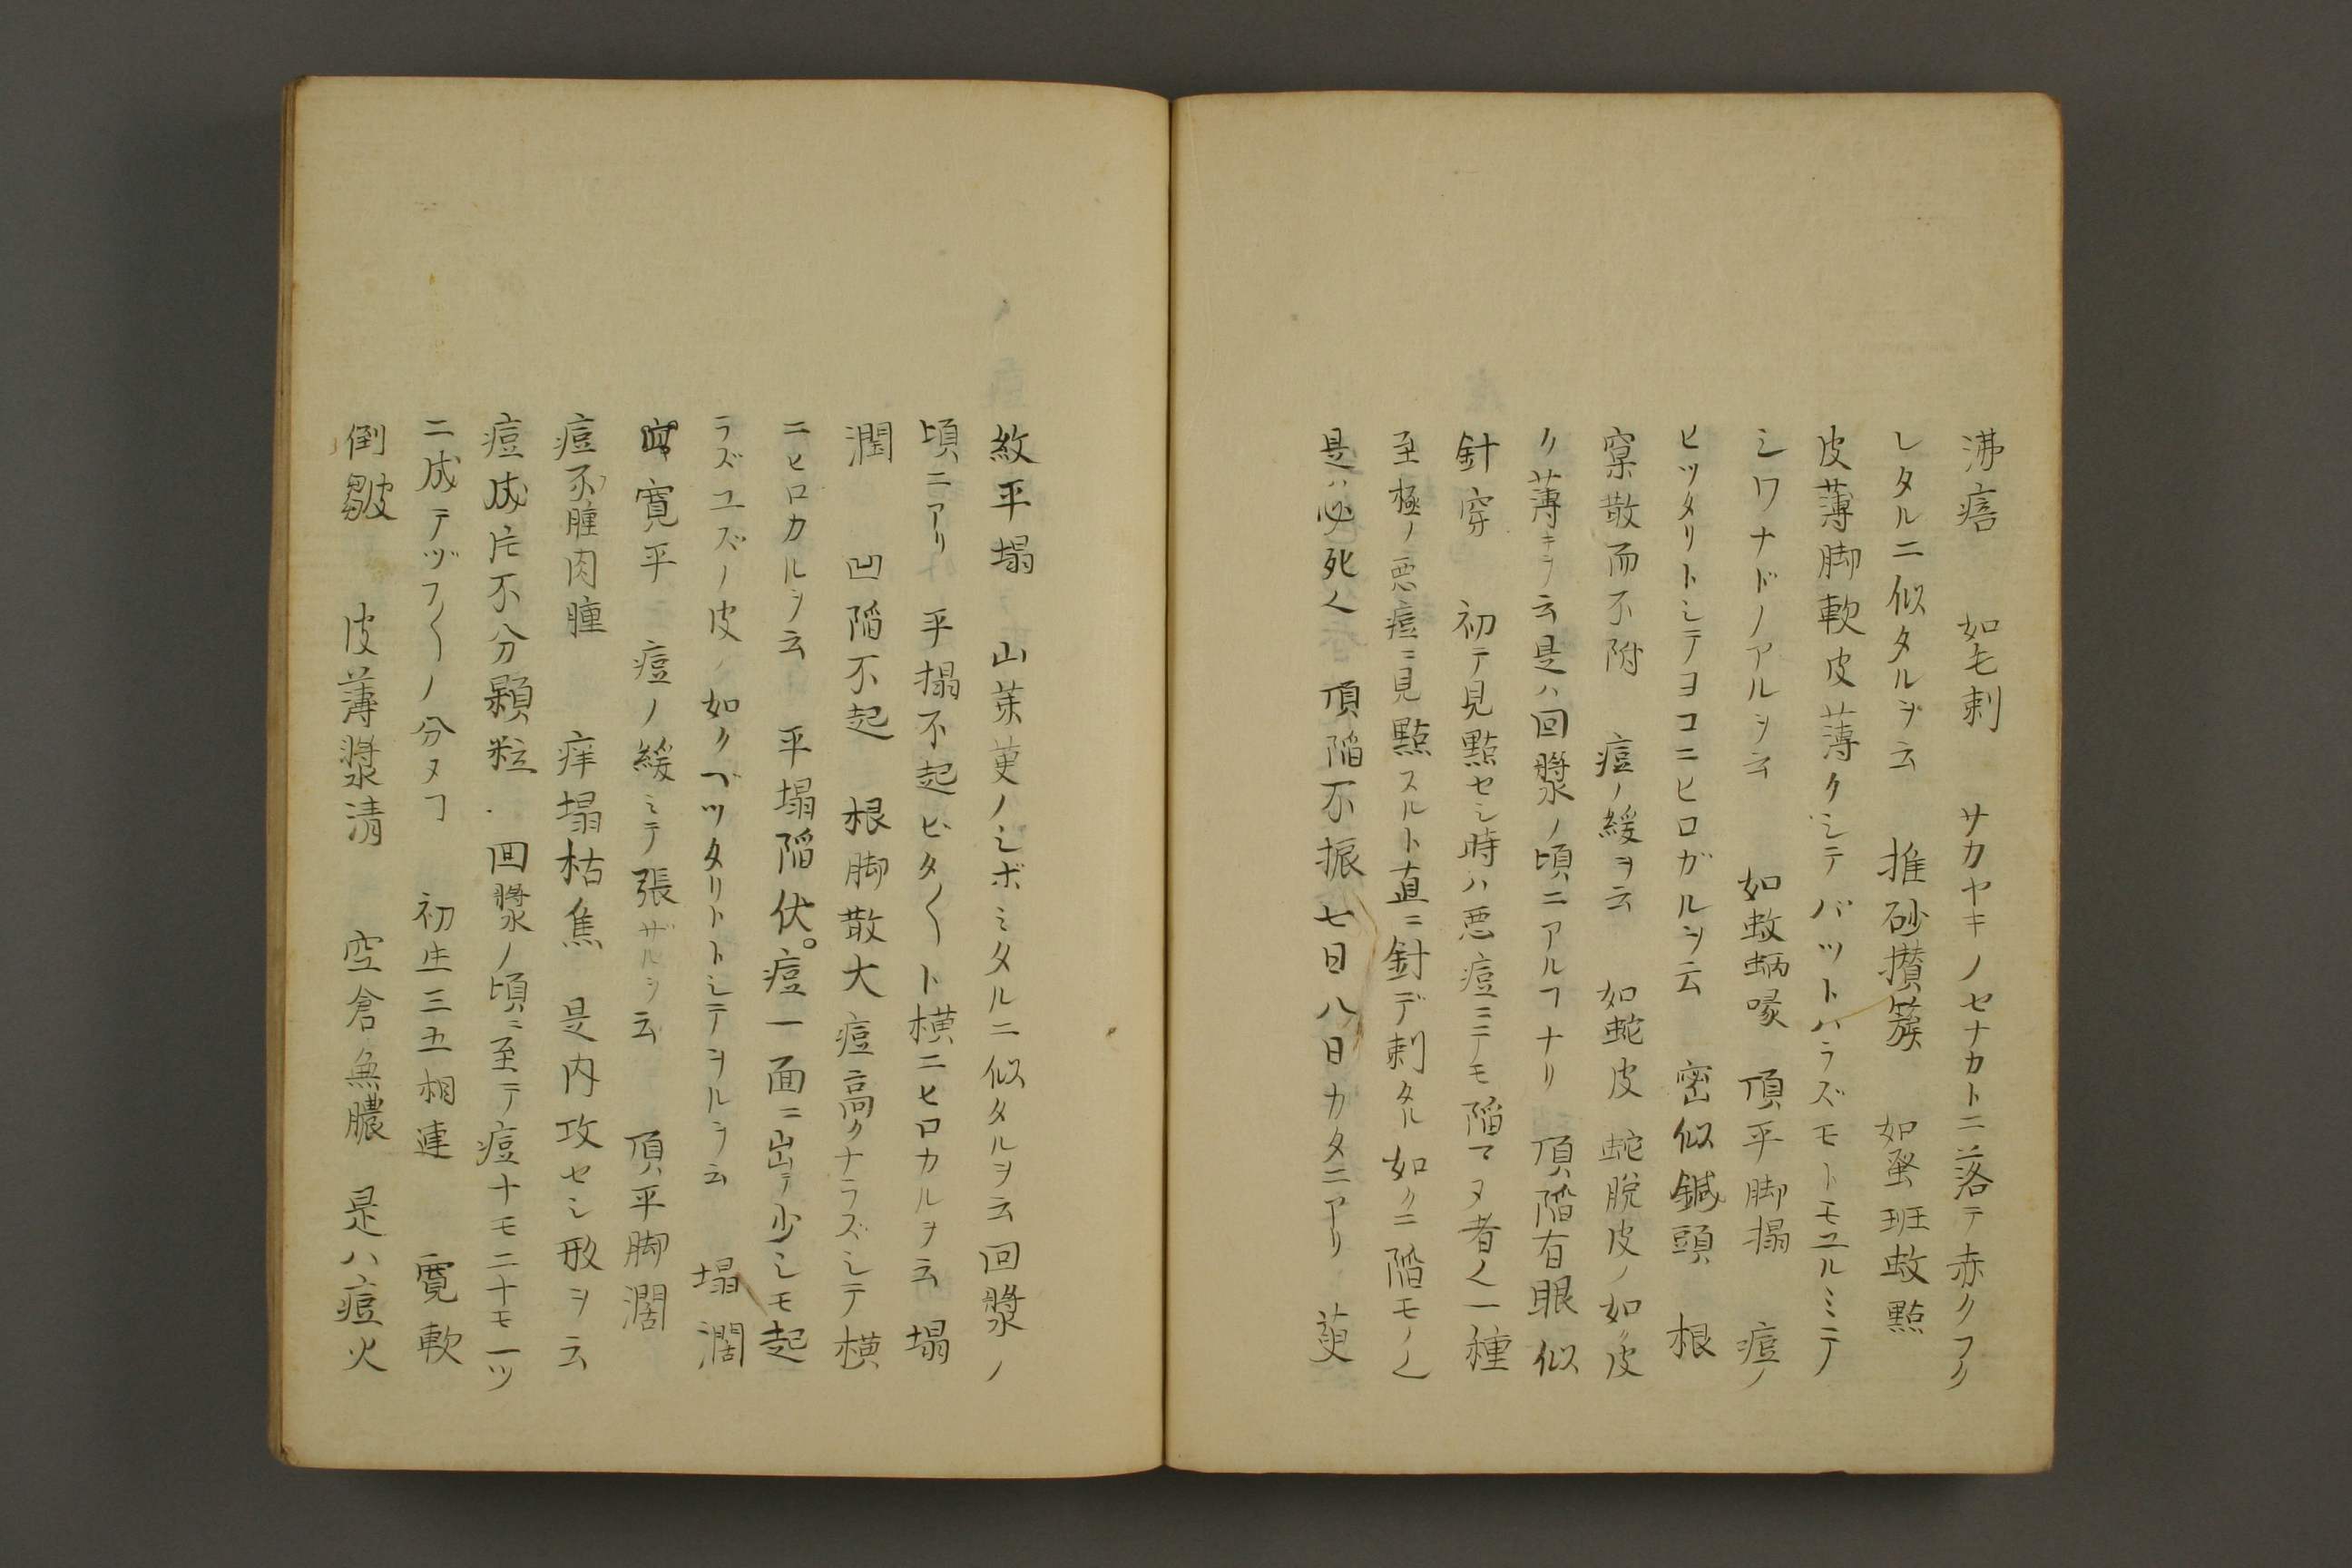 沸㾦　如毛刺　サカヤキノセナカトニ落テ赤クフク
レタルニ似タルヲ云　推砂攅簇　如蚤班蚊㸃
皮薄脚軟皮薄クシテバットハラズモトモユルミテ
シワナドノアルヲ云　如蚊蚋喙　頂平脚塌　痘ノ
ヒツタリトシテヨコニヒロガルヲ云　密似鍼頭　根
窠散而不附　痘ノ緩ヲ云　如蛇皮　蛇脱皮ノ如ク皮
ク薄キヲ云是ハ回漿ノ頃ニアルヿナリ　頂陷有眼似
針穿　初テ見點セシ時ハ悪痘ニニテモ陷マヌ者く一種
至極ノ悪痘ニ見點スルト直ニ針デ刺タル如クニ陷モノく
是ハ必死く　頂陷不振七日八日カタニアリ　萸
紋平塌　山茱萸ノシボミタルニ似タルヲ云回漿ノ
頃ニアリ　平塌不起ヒタ〱ト横ニヒロカルヲ云　塌
濶　凹陷不起　根脚散大痘高クナラズシテ横
ニヒロカルヲ云　平塌陷伏。痘一面ニ出テ少シモ起
ラズユズノ皮ノ如クベツタリトトシテヲルヲ云　塌濶
寛平　痘ノ緩ミテ張ザルヲ云　頂平脚濶
痘不腫肉腫　痒塌枯焦　是内攻セシ形ヲ云
痘成片不分顆粒．回漿ノ頃ニ至テ痘十モ二十モ一ツ
ニ成テヅフ〱ノ分ヌヿ　初生三五相連　寛軟
倒皺　皮薄漿清　空倉無膿　是ハ痘火